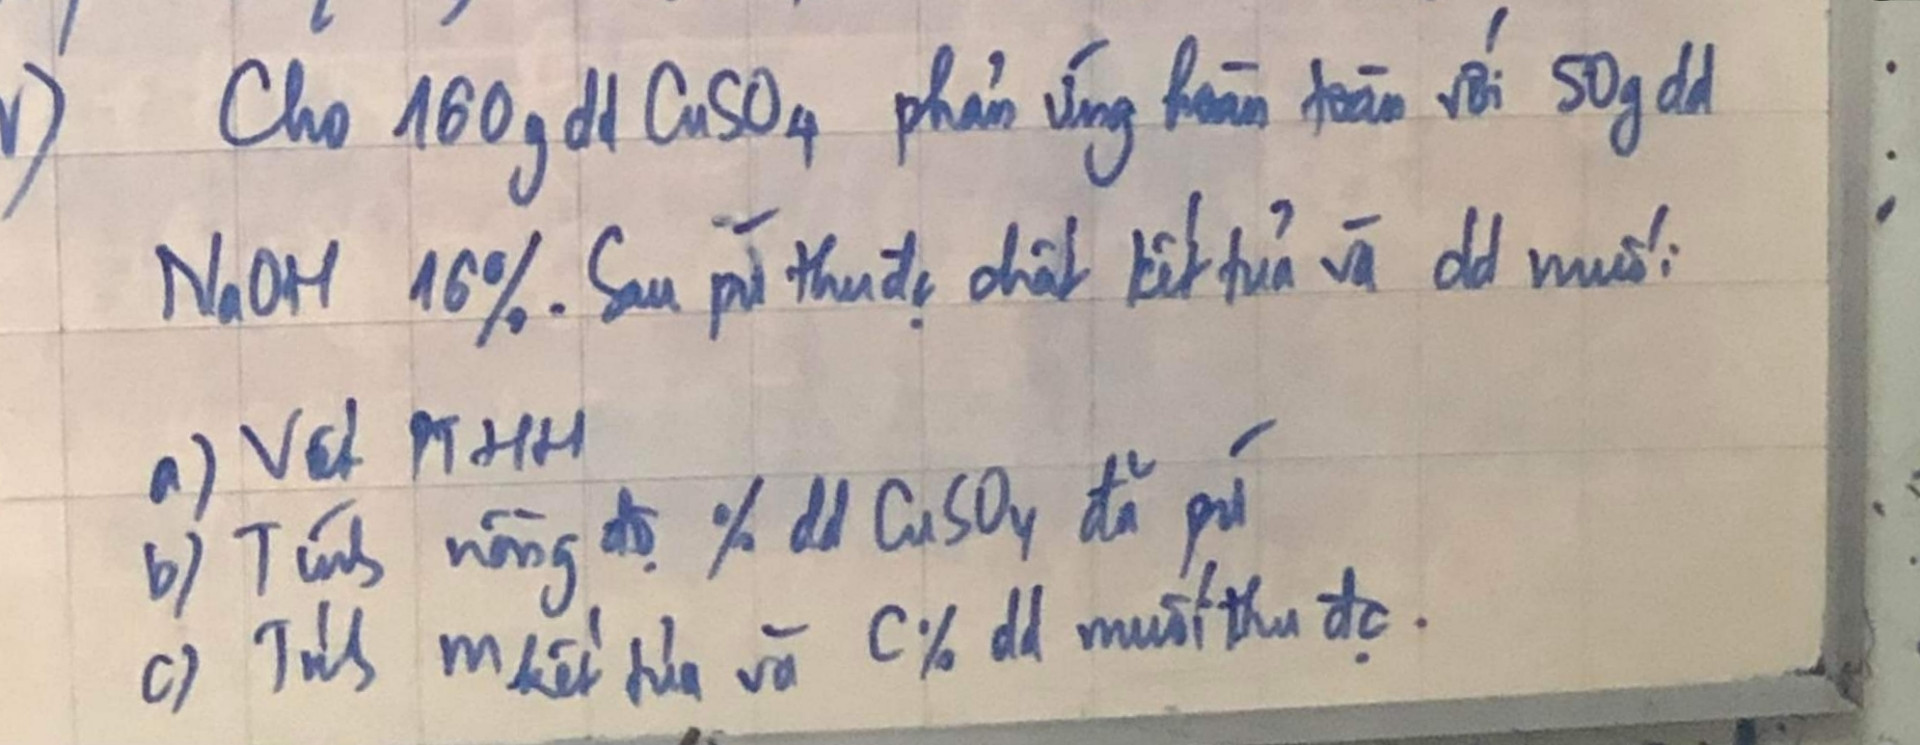 Cho 160g dd CuSO4 phản ứng hoàn toàn với 50g dd
NaOH 16%. Sau pứ thu đc chất kết tủa và dd muối
a) Viết PTHH
b) Tính nồng độ % dd CuSO4 đã pứ
c) Tính m kết tủa và C% dd muối thu đc.